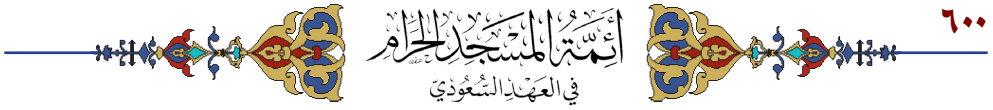 ٦٠٠
أَئِمَّةُ المَسْجِدِ الحَرَامِ
في العَهْدِ السُّعُودِيّ